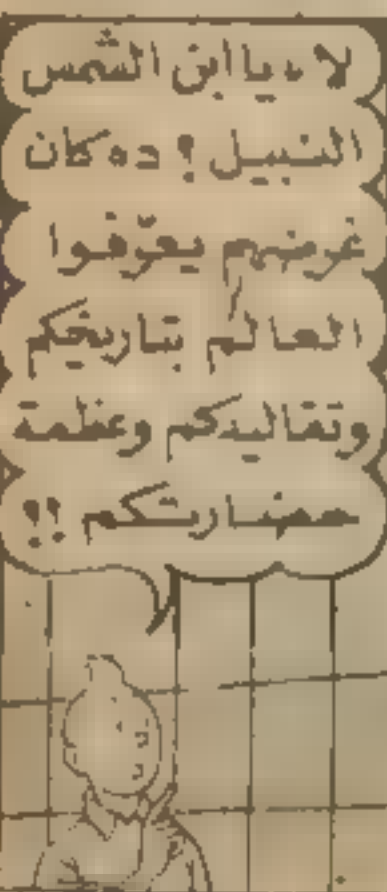 لا، يا ابن الشمس
النبيل! ده كان
غرضهم يعرّفوا
العالم بتاريخكم
وتقاليدكم وعظمة
حضارتكم!!